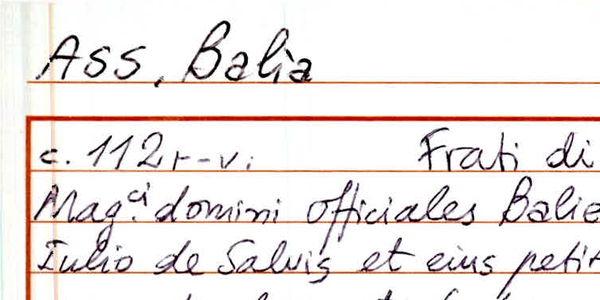 ASS, Balia
c. 112r-v. Frati di
Mag.ci domini officiales Balie
Iulio de Salvis et eius petit